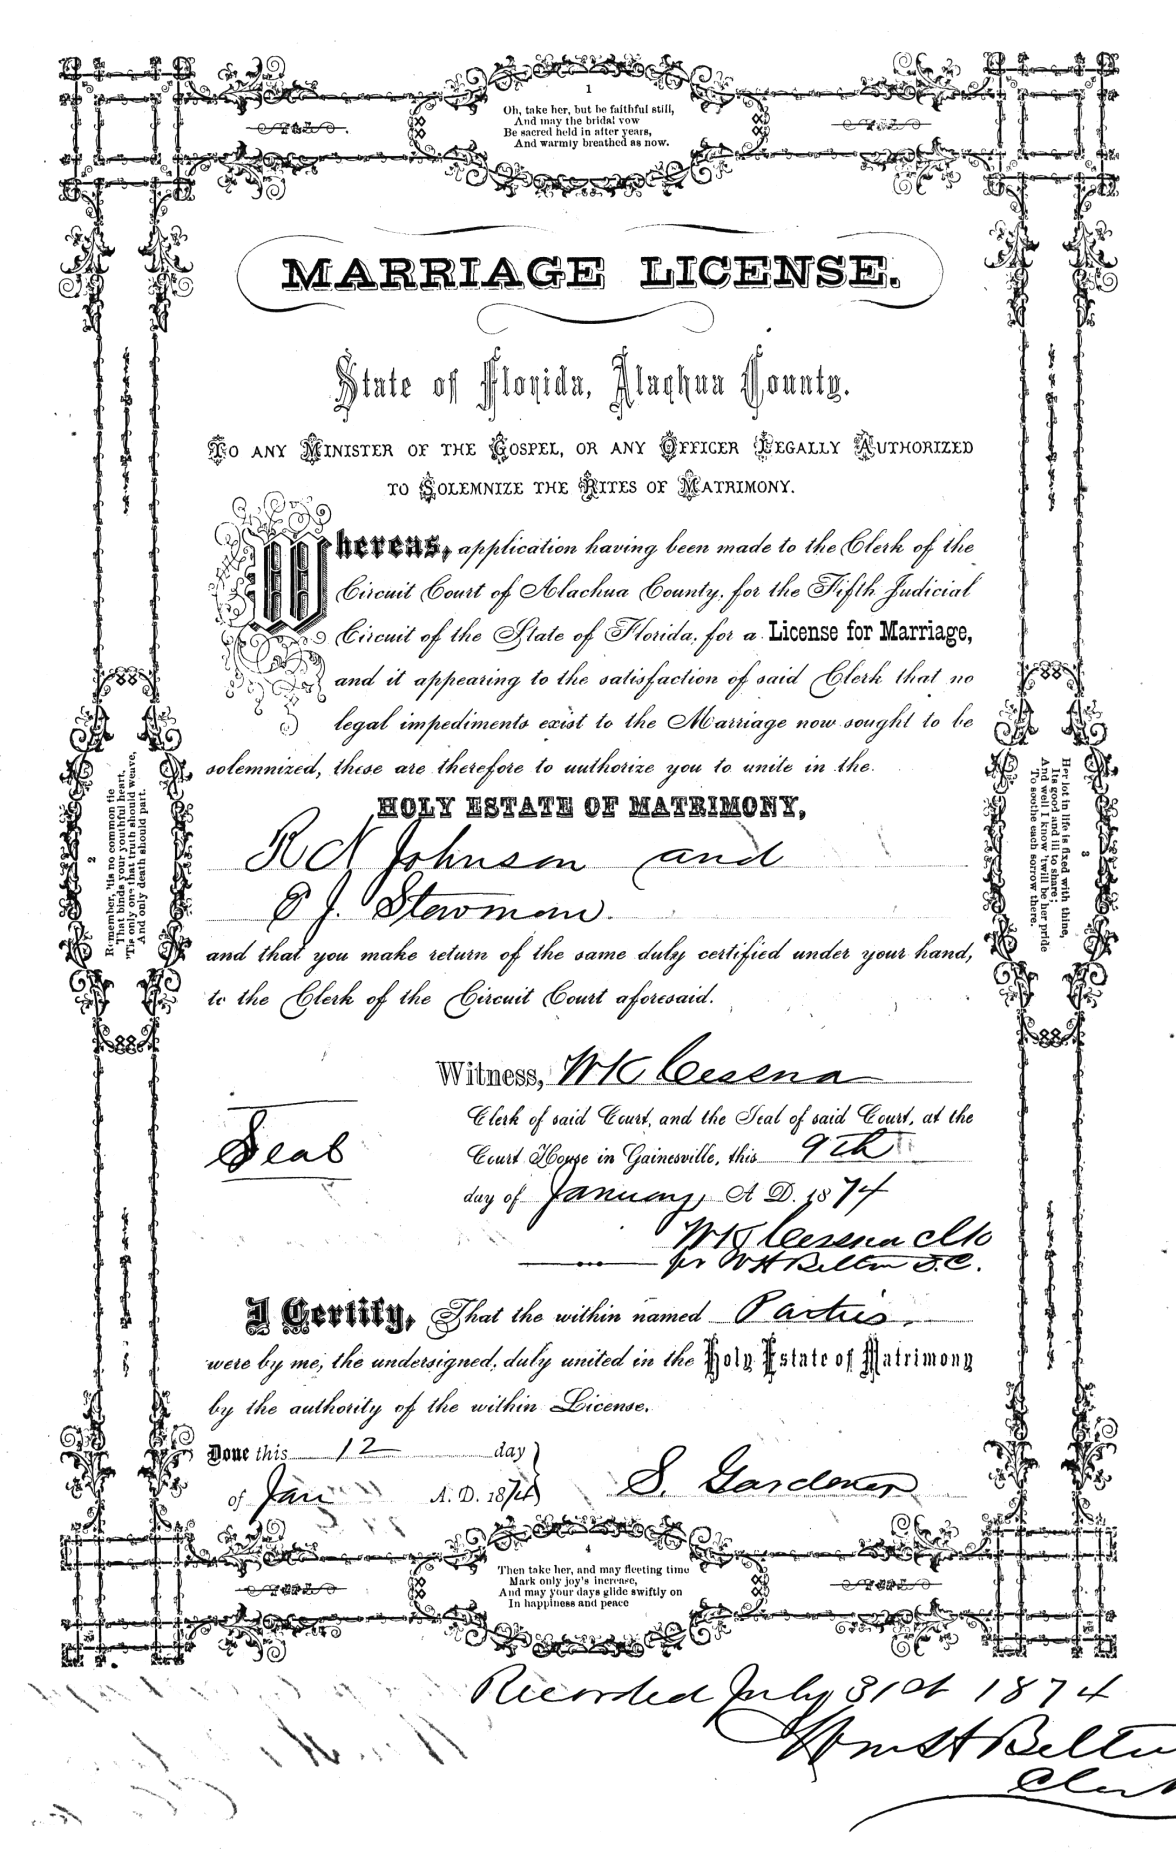 1
Oh, take her, but be faithful still,
And may the bridal vow
Be sacred held in after years,
And warmly breathed as now.
MARRIAGE LICENSE.
State of Florida, Alachua County.
TO ANY MINISTER OF THE GOSPEL, OR ANY OFFICER LEGALLY AUTHORIZED
TO SOLEMNIZE THE RITES OF MATRIMONY.
Whereas, application having been made to the Clerk of the
Circuit Court of Alachua County, for the Fifth Judicial
Circuit of the State of Florida, for a License for Marriage,
and it appearing to the satisfaction of said Clerk that no
legal impediments exist to the Marriage now sought to be
solemnized, these are therefore to authorize you to unite in the
HOLY ESTATE OF MATRIMONY,
R N Johnson and
E J. Stewman.
and that you make return of the same duly certified under your hand,
to the Clerk of the Circuit Court aforesaid.
2
Remember, 'tis no common tie
That binds your youthful heart,
'Tis only one that truth should weave,
And only death should part.
3
Her lot in life is fixed with thine,
Its good and ill to share;
And well I know 'twill be her pride
To soothe each sorrow there.
Witness, WK Cessna
Clerk of said Court, and the Seal of said Court, at the
Seal
Court House in Gainesville, this 9th
day of January, A D. 1874
WK Cessna Clk
pr WH Belton D.C.
I Certify, That the within named Parties.
were by me, the undersigned, duly united in the Holy Estate of Matrimony
by the authority of the within License.
Done this 12 day
of Jan A. D. 1874
S. Gardener
4
Then take her, and may fleeting time
Mark only joy's increase,
And may your days glide swiftly on
In happiness and peace
Recorded July 31st 1874
Wm H Belton
Clerk